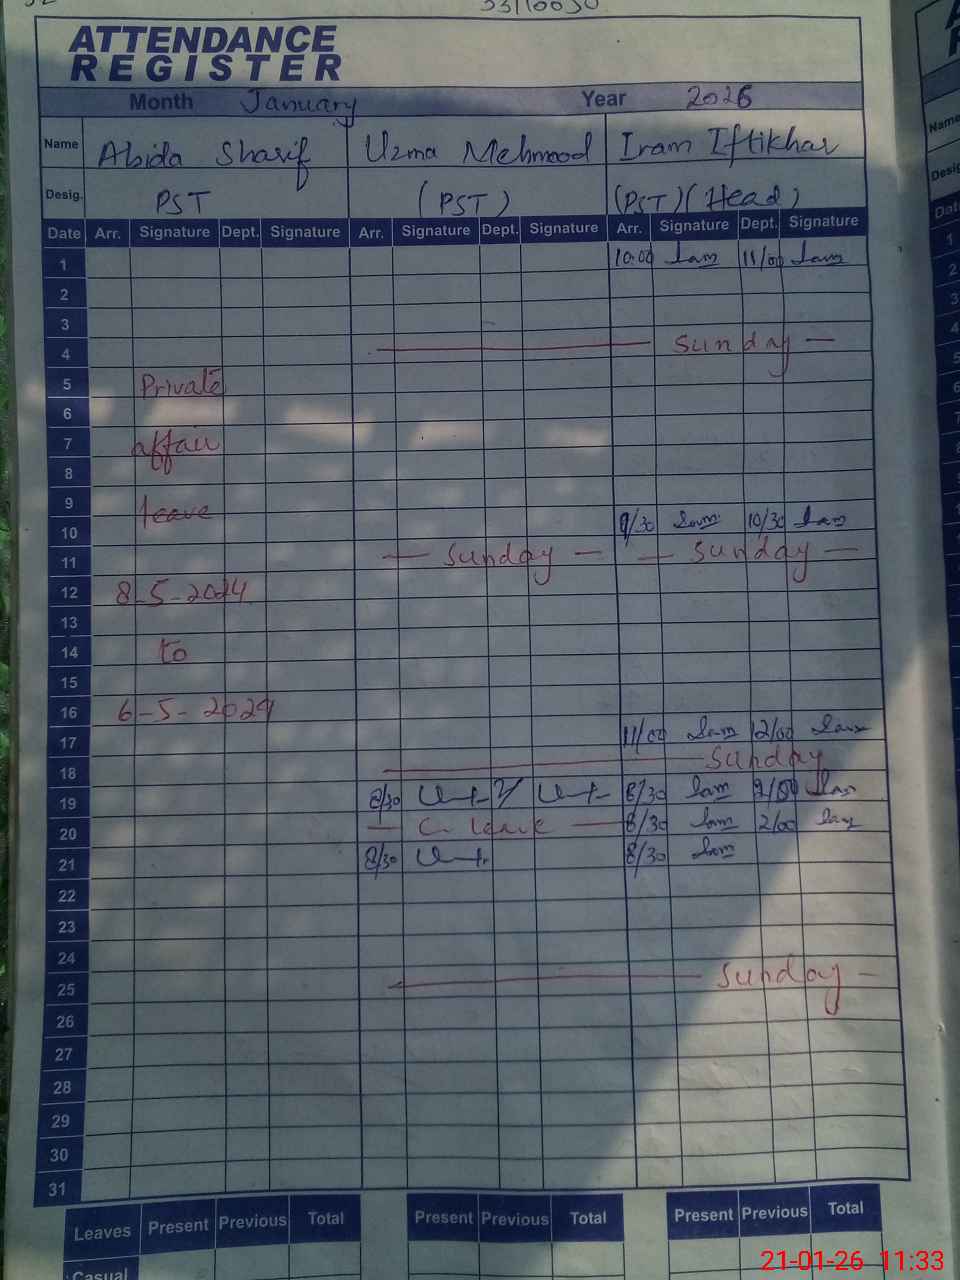 ATTENDANCE
REGISTER
Month January Year 2026
Name Abida Sharif Uzma Mehmood Iram Iftikhar
Desig. PST (PST) (PST) (Head)
Date Arr. Signature Dept. Signature Arr. Signature Dept. Signature Arr. Signature Dept. Signature
1 10:00 11/00
2
3
4 Sunday
5 Private
6
7 affair
8
9 leave
10 9/30 10/30
11 Sunday Sunday
12 8-5-2024
13
14 to
15
16 6-5-2029
17 11/00 12/00
18 Sunday
19 8/30 8/30 2/00
20 C. leave 8/30 2/00
21 8/30 8/30
22
23
24
25 Sunday
26
27
28
29
30
31
Leaves Present Previous Total Present Previous Total Present Previous Total
Casual
21-01-26 11:33